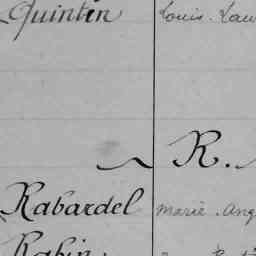 Quintin Louis. Lau
R.
Rabardel Marie. Ang
Rabin.